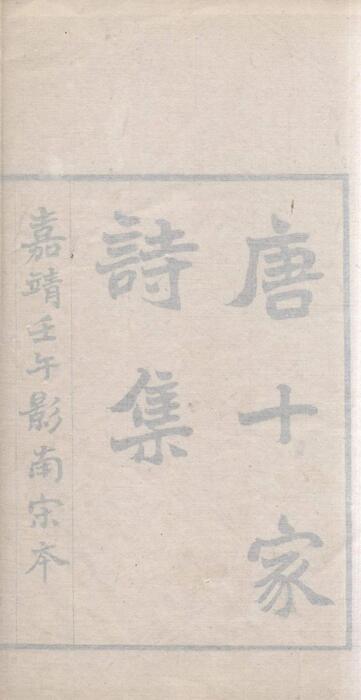 唐十家
詩集
嘉靖壬午影南宋本